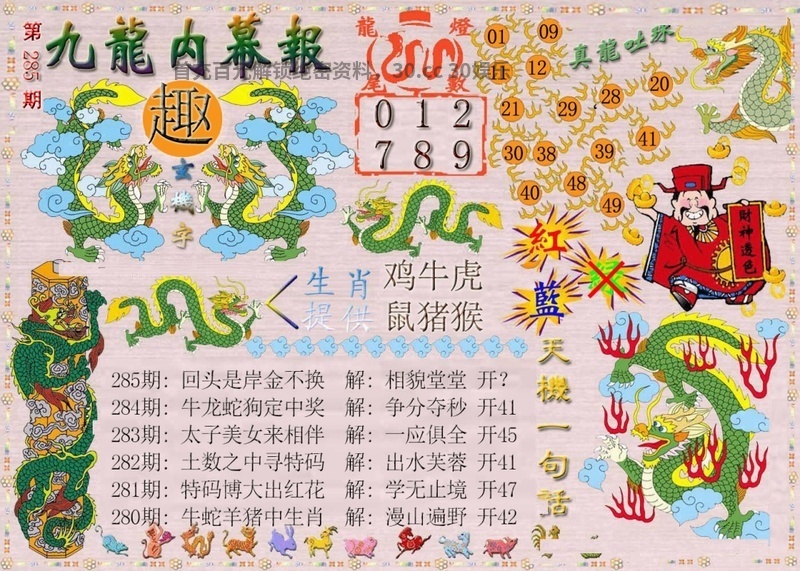 第285期
九龍内幕報
首充百元解锁绝密资料，30.cc 30娱乐
趣
玄機字
龍燈
尾數
0 1 2
7 8 9
真龍吐珠
01 09
11 12
20
21 29 28
41
30 38 39
40 48 49
紅
藍
財神透色
生肖 鸡牛虎
提供 鼠猪猴
天機一句話
285期: 回头是岸金不换 解: 相貌堂堂 开?
284期: 牛龙蛇狗定中奖 解: 争分夺秒 开41
283期: 太子美女来相伴 解: 一应俱全 开45
282期: 土数之中寻特码 解: 出水芙蓉 开41
281期: 特码博大出红花 解: 学无止境 开47
280期: 牛蛇羊猪中生肖 解: 漫山遍野 开42